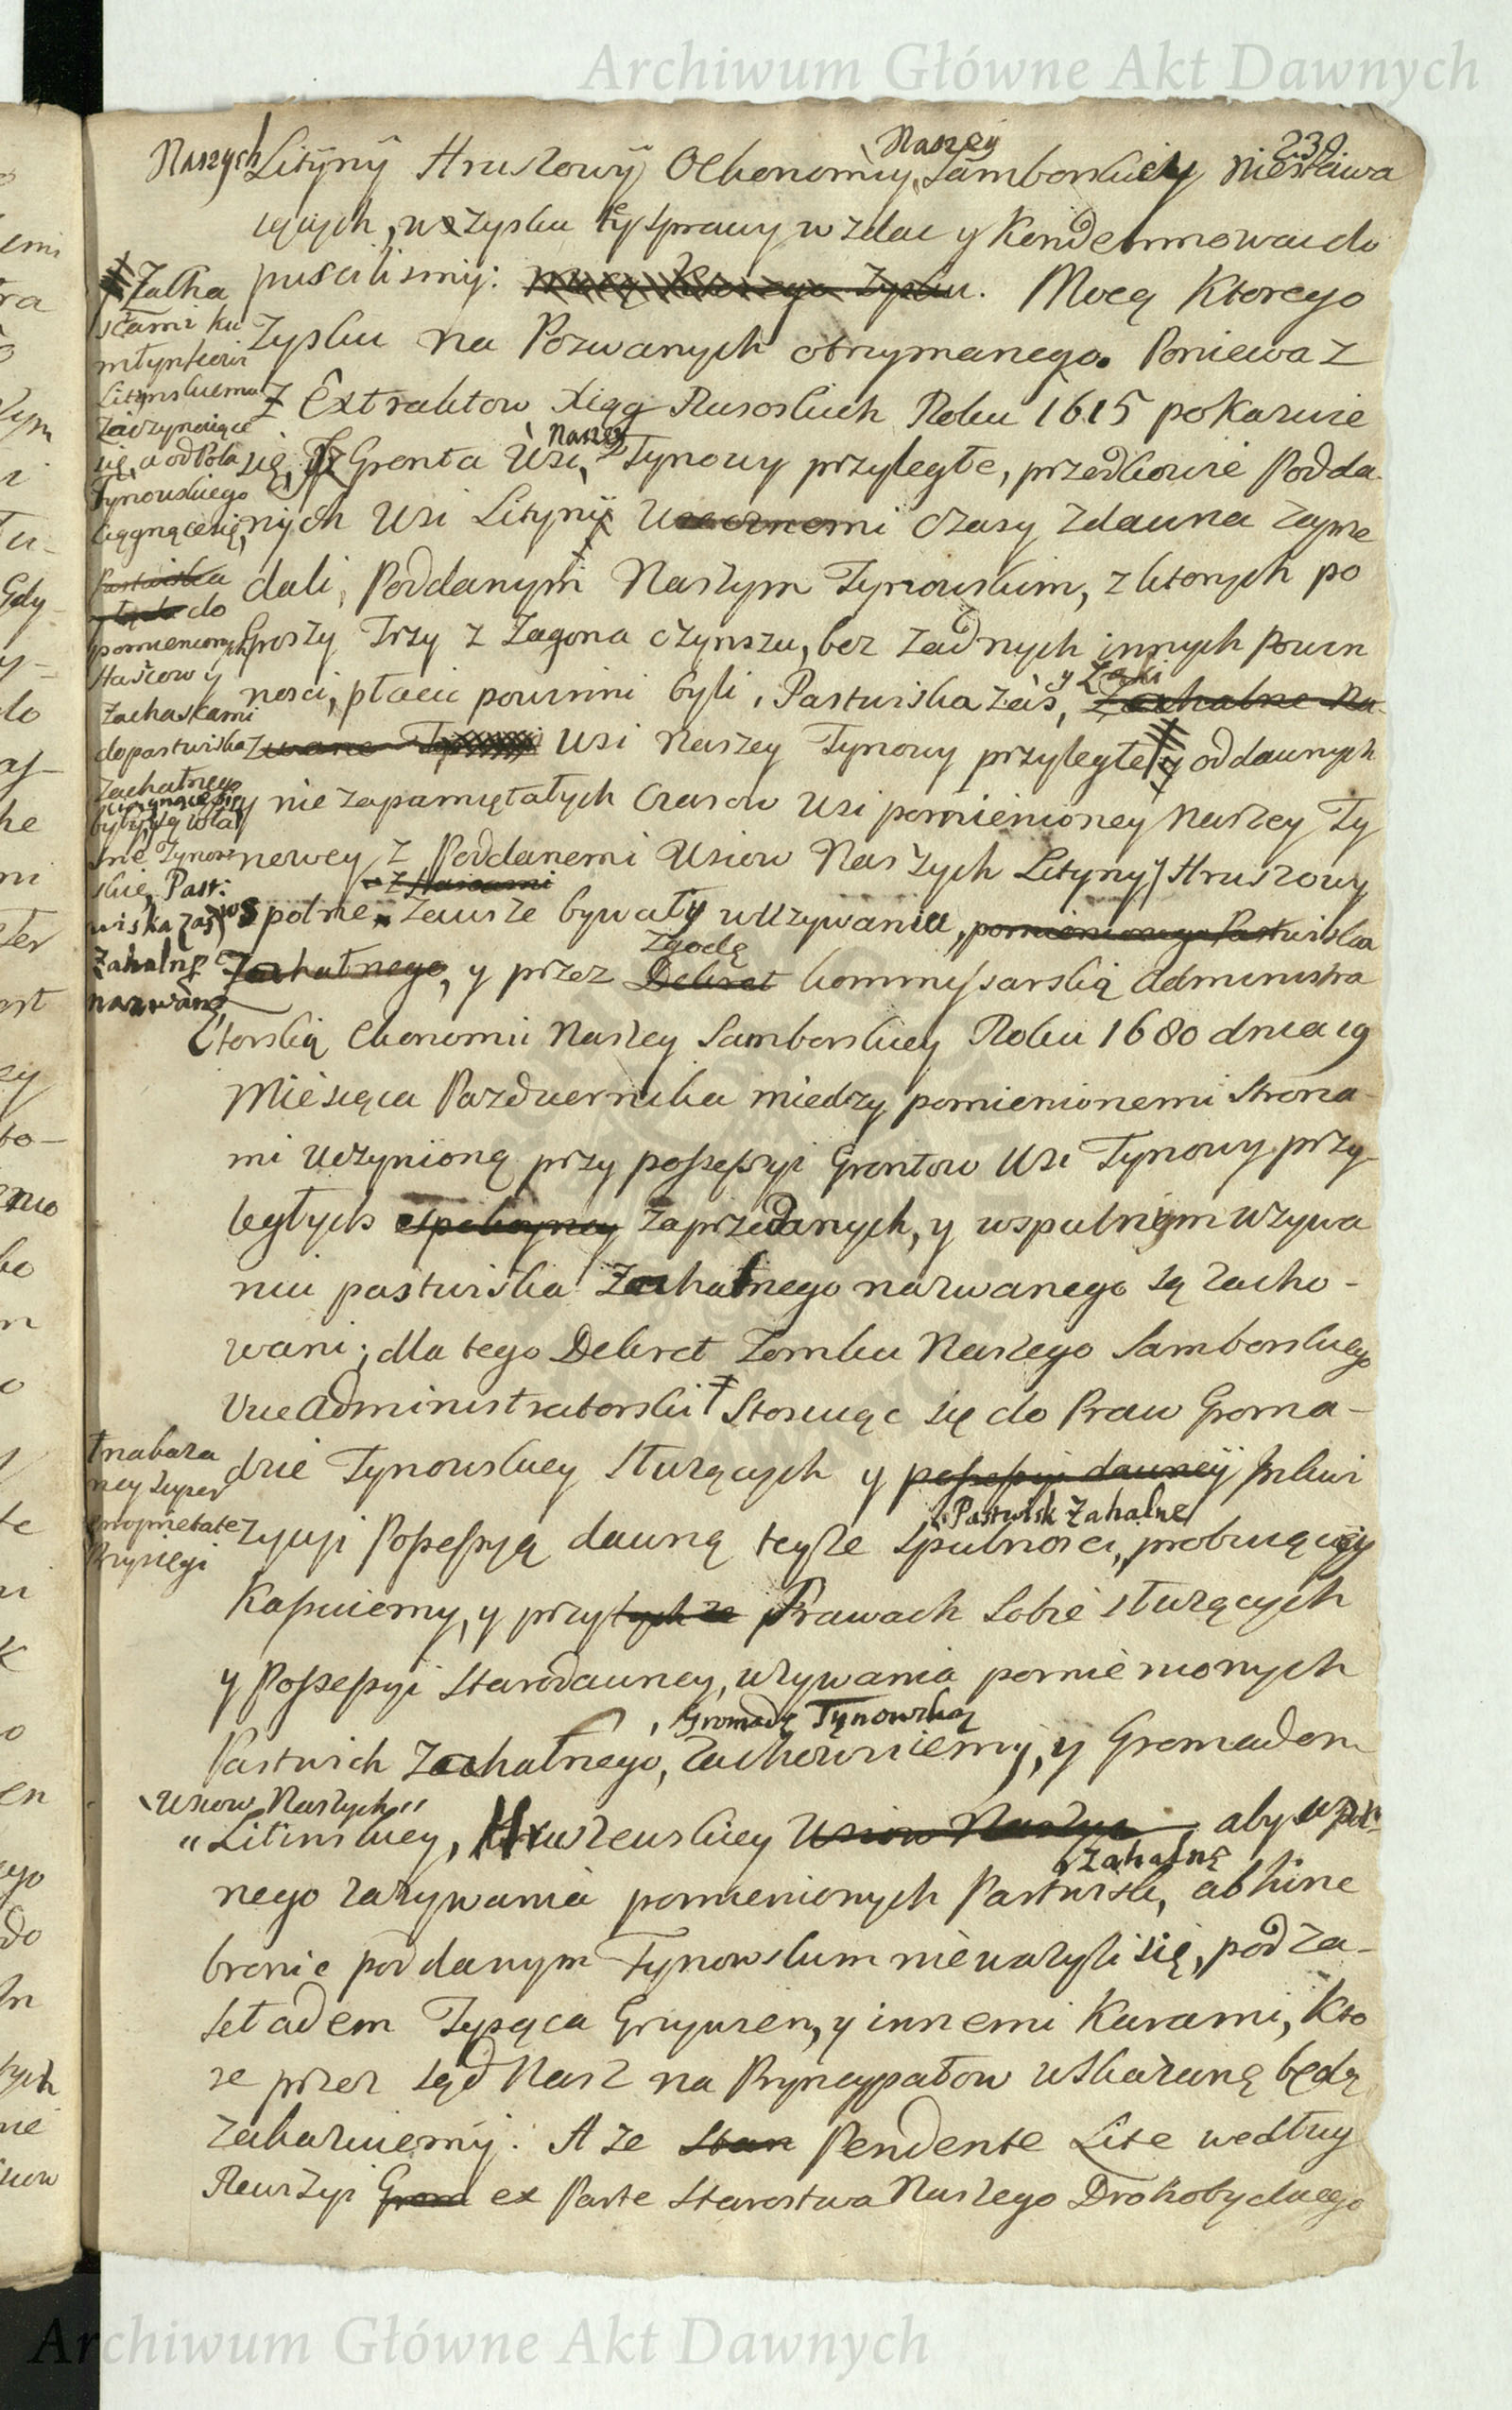 Archiwum Główne Akt Dawnych
239
Naszych Lityny Hruszowy Oekonomiy Naszey Samborskiey niestawa
iących, w zysku tey sprawy wzdac y Kondemnowac do
puscilismy: Mocą Ktorego Zysku. Mocą Ktorego
Zysku na Pozwanych otrzymanego. Poniewaz
z Extraktow Xiąg Rusoskich Roku 1615 pokazuie
się, Iz Gronta Wsi Naszey Tynowy przyległe, przodkowie Podda
nych Wsi Lityny Wiecznemi czasy zdawna zaprze
dali, Poddanym Naszym Tynowskim, z ktorych po
Groszy Trzy z Zagona czynszu, bez zadnych innych Powin
nosci, płacic powinni byli, Pastwiska zas, y Łąki Zachalne Na
zwane Wsi Naszey Tynowy przyległe y oddawnych
y nie zapamiętałych Czasow Wsi pomienioney Naszey Ty
nowey z Poddanemi Wsiow Naszych Lityny y Hruszowy
z Stawami
wspolne zawsze bywały uzywania, pomienionego Pastwiska
Zachalnego, y przez Zgodę Dekret kommissarską Administra
torską Ekonomii Naszey Samborskiey Roku 1680 dnia 19
Miesiąca Pazdziernika miedzy pomienionemi Strona-
mi uczynioną przy possessyi Grontow Wsi Tynowy przy-
ległych spokoyney zaprzedanych, y wspulnym uzywa
niu pastwiska Zachalnego nazwanego są zacho-
wani; dla tego Dekret Zamku Naszego Samborskiego
Vice Administratorski Stosuiąc się do Praw Groma-
dzie Tynowskiey słuzących y possessyi dawney Inkwi
zycyi Possessyą dawną teyze spulnosci, Pastwisk Zahalne probuiącey
Kassuiemy, y przy tychze Prawach Sobie słuzących
y Possessyi Starodawney, uzywania pomienionych
Pastwisk Zachalnego, Gromadę Tynowską Zachowuiemy, y Gromadom
Wsiow Naszych
Litinskiey, Hruszewskiey Wsiow Naszych aby wspol-
nego zazywania pomienionych Pastwisk, Zahalną abhinc
bronic poddanym Tynowskim niewazyli się, pod za-
kładem Tysąca Grzywien, y innemi Karami, Kto
re przez sąd Nasz na Pryncypałow wskazaną będą
Zakazuiemy. A ze Stan Pendente Lite według
Rewizyi Grom ex Parte Starostwa Naszego Drohobyckiego
Zalha
sčami ku
młynkowi
Litynskiemu
Zaczynaiące
się, a od Pola
Tynowskiego
ciągnące się,
Pastwiska
do
pomienionych
Zachaskami
do pastwiska
Zachalnego
ciągnące się
były, są wła
sne Tynow
skie, Past:
wiska zas
Zahalne
nazwane
na kaza
ney super
proprietate
Przysięgi
Archiwum Główne Akt Dawnych